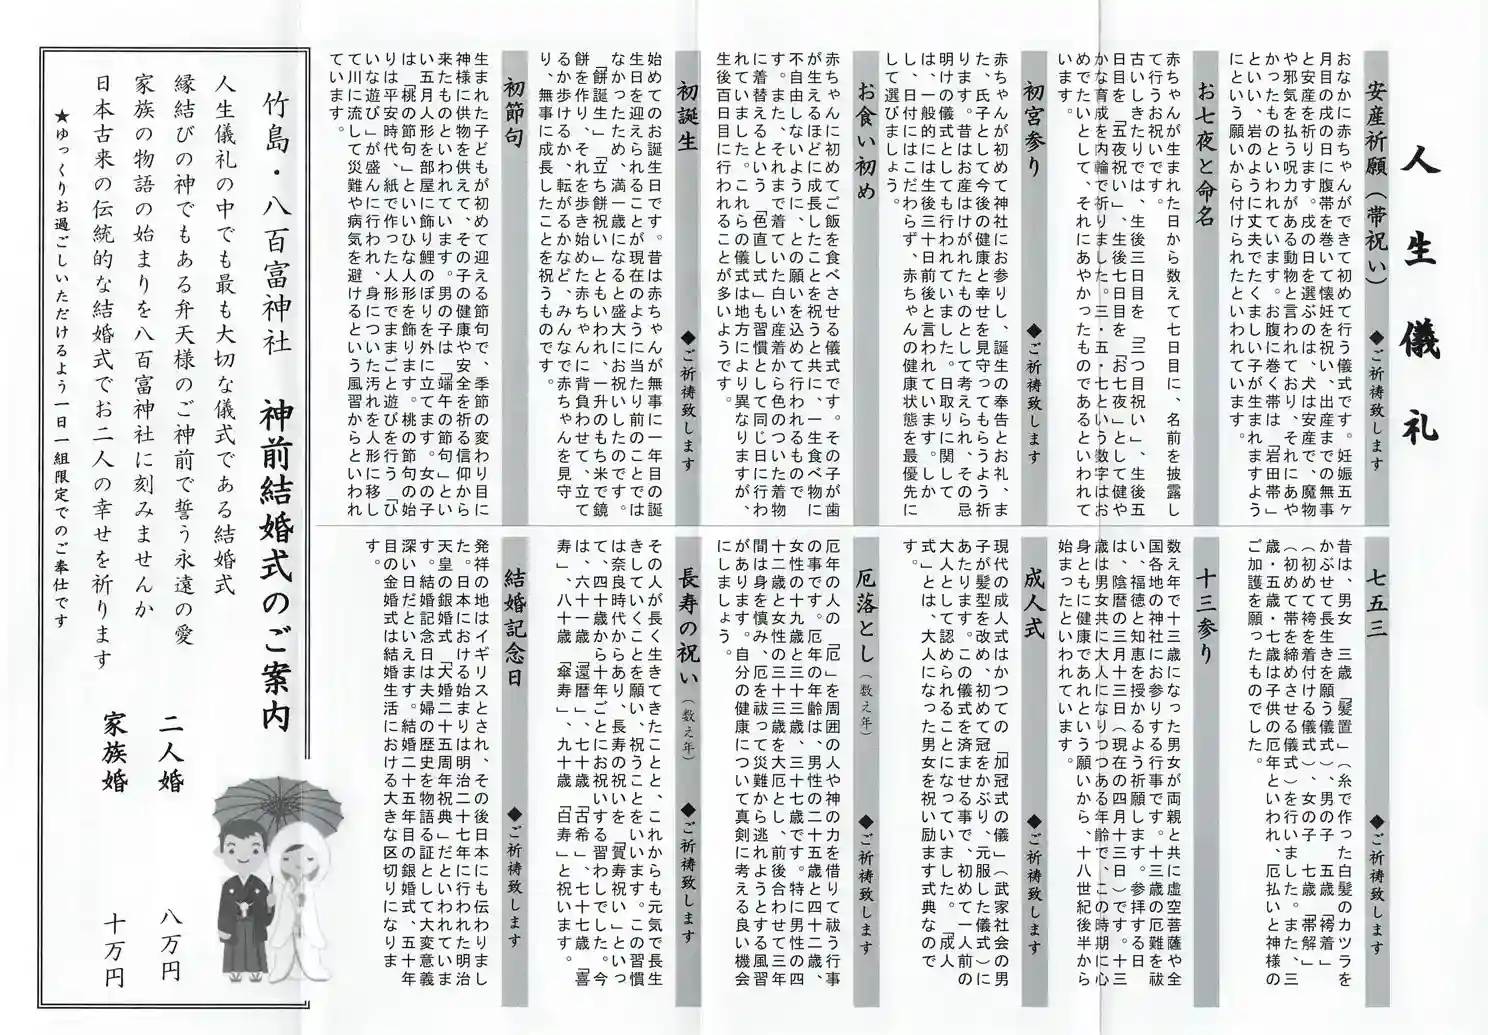 人生儀礼
安産祈願（帯祝い）　◆ご祈祷致します
おなかに赤ちゃんができて初めて行う儀式です。妊娠五ヶ
月目の戌の日に腹帯を巻いて懐妊を祝い、出産までの無事
と安産を祈ります。戌の日を選ぶのは、犬は安産で、魔物
や邪気を払う呪力がある動物と言われており、それにあや
かったものといわれています。お腹に巻く帯は「岩田帯」
といい、岩のように丈夫でたくましい子が生まれますよう
にという願いから付けられたといわれています。
お七夜と命名
赤ちゃんが生まれた日から数えて七日目に、名前を披露し
て行うお祝いです。
古いしきたりでは、生後三日目を「三つ目祝い」、生後五
日目を「五夜祝い」、生後七日目を「お七夜」として健や
かな育成を内輪で祈りました。三・五・七という数字はお
めでたいとして、それにあやかったものであるといわれて
います。
初宮参り　◆ご祈祷致します
赤ちゃんが初めて神社にお参りし、誕生の奉告とお礼、ま
た、氏子として今後の健康と幸せを見守ってもらうよう祈
ります。昔はお産はけがれたものとして考えられ、その忌
明けの儀式としても行われていました。日取りに関して
は、一般的には生後三十日前後と言われています。しか
し、日付にはこだわらず、赤ちゃんの健康状態を最優先に
して選びましょう。
お食い初め
赤ちゃんに初めてご飯を食べさせる儀式です。その子が歯
が生えるほどに成長したことを祝うと共に、一生食べ物に
不自由しないように、との願いを込めて行われるもので
す。また、それまで着ていた白い産着から色のついた着物
に着替えるという「色直し式」も習慣として同じ日に行わ
れていました。これらの儀式は地方により異なりますが、
生後百日目に行われることが多いようです。
初誕生　◆ご祈祷致します
始めてのお誕生日です。昔は赤ちゃんが無事に一年目の誕
生日を迎えられることが現在のように当たり前のことでは
なかったため、満一歳になると盛大にお祝いしたのです。
「餅誕生」「立ち餅祝い」ともいわれ、一升のもち米で鏡
餅を作り、それを歩き始めた赤ちゃんに背負わせて、立て
るか歩けるか、転がるかなど、みんなで赤ちゃんを見守
り、無事に成長したことを祝うものです。
初節句
生まれた子どもが初めて迎える節句で、季節の変わり目に
神様に供物を供えて、その子の健康や安全を祈る信仰から
来たものといわれています。男の子は「端午の節句」とい
い五月人形を部屋に飾り鯉のぼりを外に立てます。女の子
は「桃の節句」といいひな人形を飾ります。桃の節句の始
りは平安時代、紙で作った人形でままごと遊びを行う「ひ
いな遊び」が盛んに行われ、身についた汚れを人形に移し
て川に流して災難や病気を避けるという風習からといわれ
ています。
七五三　◆ご祈祷致します
昔は、男女　三歳「髪置」（糸で作った白髪のカツラを
かぶせて長生きを願う儀式）、男の子　五歳「袴着」
（初めて袴を着付ける儀式）、女の子　七歳「帯解」
（初めて帯を締めさせる儀式）を行いました。また、三
歳・五歳・七歳は子供の厄年といわれ、厄払いと神様の
ご加護を願ったものでした。
十三参り
数え年で十三歳になった男女が両親と共に虚空菩薩や全
国各地の神社にお参りする行事です。十三歳の厄難を祓
い、福徳と知恵を授かるよう祈願します。参拝する日
は、陰暦の三月十三日（現在の四月十三日）です。十三
歳は男女共に大人になりつつある年齢で、この時期に心
身ともに健康であれという願いから、十八世紀後半から
始まったといわれています。
成人式　◆ご祈祷致します
現代の成人式はかつての「加冠式の儀」（武家社会の男
子が髪型を改め、初めて冠をかぶり、元服した儀式）に
あたります。この儀式を済ませる事で、初めて一人前の
大人として認められることになっていました。「成人
式」とは、大人になった男女を祝い励ます式典なので
す。
厄落とし（数え年）　◆ご祈祷致します
厄年の人の「厄」を周囲の人や神の力を借りて祓う行事
の事です。厄年の年齢は、男性の二十五歳と四十二歳、
女性の十九歳と三十三歳、三十七歳です。特に男性の四
十二歳と女性の三十三歳を大厄とし、前後合わせて三年
間は身を慎み、厄を祓って災難から逃れようとする風習
があります。自分の健康について真剣に考える良い機会
にしましょう。
長寿の祝い（数え年）　◆ご祈祷致します
その人が長く生きてきたことと、これからも元気で長生
きしていくことを願い、祝うことをいいます。この習慣
は奈良時代からあり、長寿の祝いを「賀寿祝い」といっ
て、四十歳から十年ごとにお祝いする習わしでした。今
は、六十一歳「還暦」、七十歳「古希」、七十七歳「喜
寿」、八十歳「傘寿」、九十歳「百寿」と祝います。
結婚記念日　◆ご祈祷致します
発祥の地はイギリスとされ、その後日本にも伝わりまし
た。日本における始まりは明治二十七年に行われた明治
天皇の銀婚式「大婚二十五周年祝典」だといわれていま
す。結婚記念日は夫婦の歴史を物語る証として大変意義
深い日だといえます。結婚二十五年目の銀婚式、五十年
目の金婚式は結婚生活における大きな区切りになりま
す。
竹島・八百富神社　神前結婚式のご案内
人生儀礼の中でも最も大切な儀式である結婚式
縁結びの神でもある弁天様のご神前で誓う永遠の愛
家族の物語の始まりを八百富神社に刻みませんか
日本古来の伝統的な結婚式でお二人の幸せを祈ります
★ゆっくりお過ごしいただけるよう一日一組限定でのご奉仕です
二人婚　八万円
家族婚　十万円